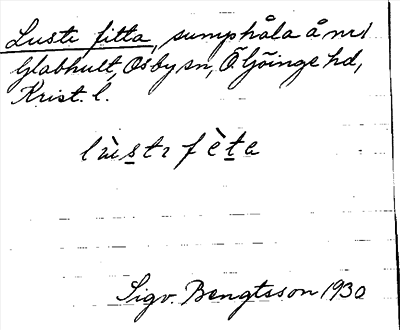 Luste fitta, sumphåla å nr 1
Glabhult, Osby sn, Ö Göinge hd,
Krist. l.
lùstɩ fèta
Sigv. Bengtsson 1930